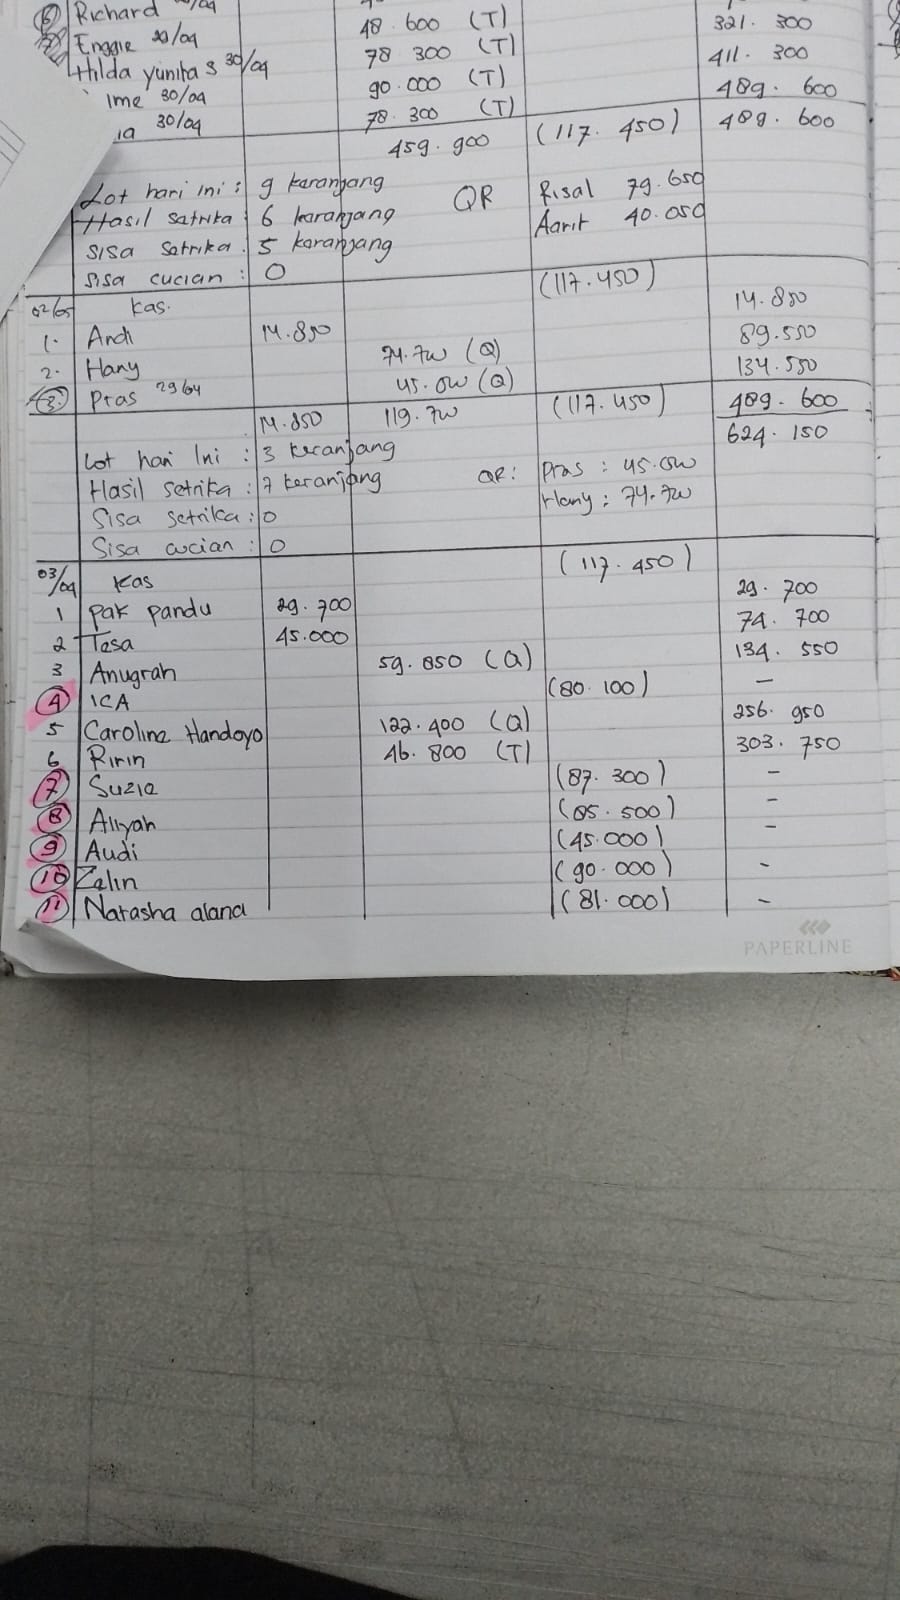 6 Richard
48.600 (T) 321.300
Enggie 30/04 78 300 (T) 411.300
Hilda yunita s 30/04 90.000 (T) 489.600
ime 30/04 78.300 (T) 489.600
ia 30/04 459.900 (117.450)
Lot hari ini : 9 keranjang QR Risal 79.650
Hasil satrika : 6 karanjang Aarit 40.050
Sisa Satrika : 5 karanjang
Sisa cucian : 0 (117.450)
02/05 Kas. 14.850
1. Andi 14.850 89.550
2. Hany 74.700 (Q) 134.550
3. Pras 29/04 45.000 (Q)
14.850 119.700 (117.450) 489.600
624.150
Lot hari Ini : 3 keranjang
Hasil Setrika : 7 keranjang QR: Pras : 45.000
Sisa Setrika : 0 Hany : 74.700
Sisa cucian : 0
03/04 Kas (117.450)
1 Pak pandu 29.700 29.700
2 Tesa 45.000 74.700
3 Anugrah 59.850 (Q) 134.550
4 ICA (80.100) -
5 Carolina Handoyo 122.400 (Q) 256.950
6 Ririn 46.800 (T) 303.750
7 Suzie (87.300) -
8 Aliyah (85.500) -
9 Audi (45.000) -
10 Zelin (90.000) -
11 Natasha alana (81.000) -
PAPERLINE